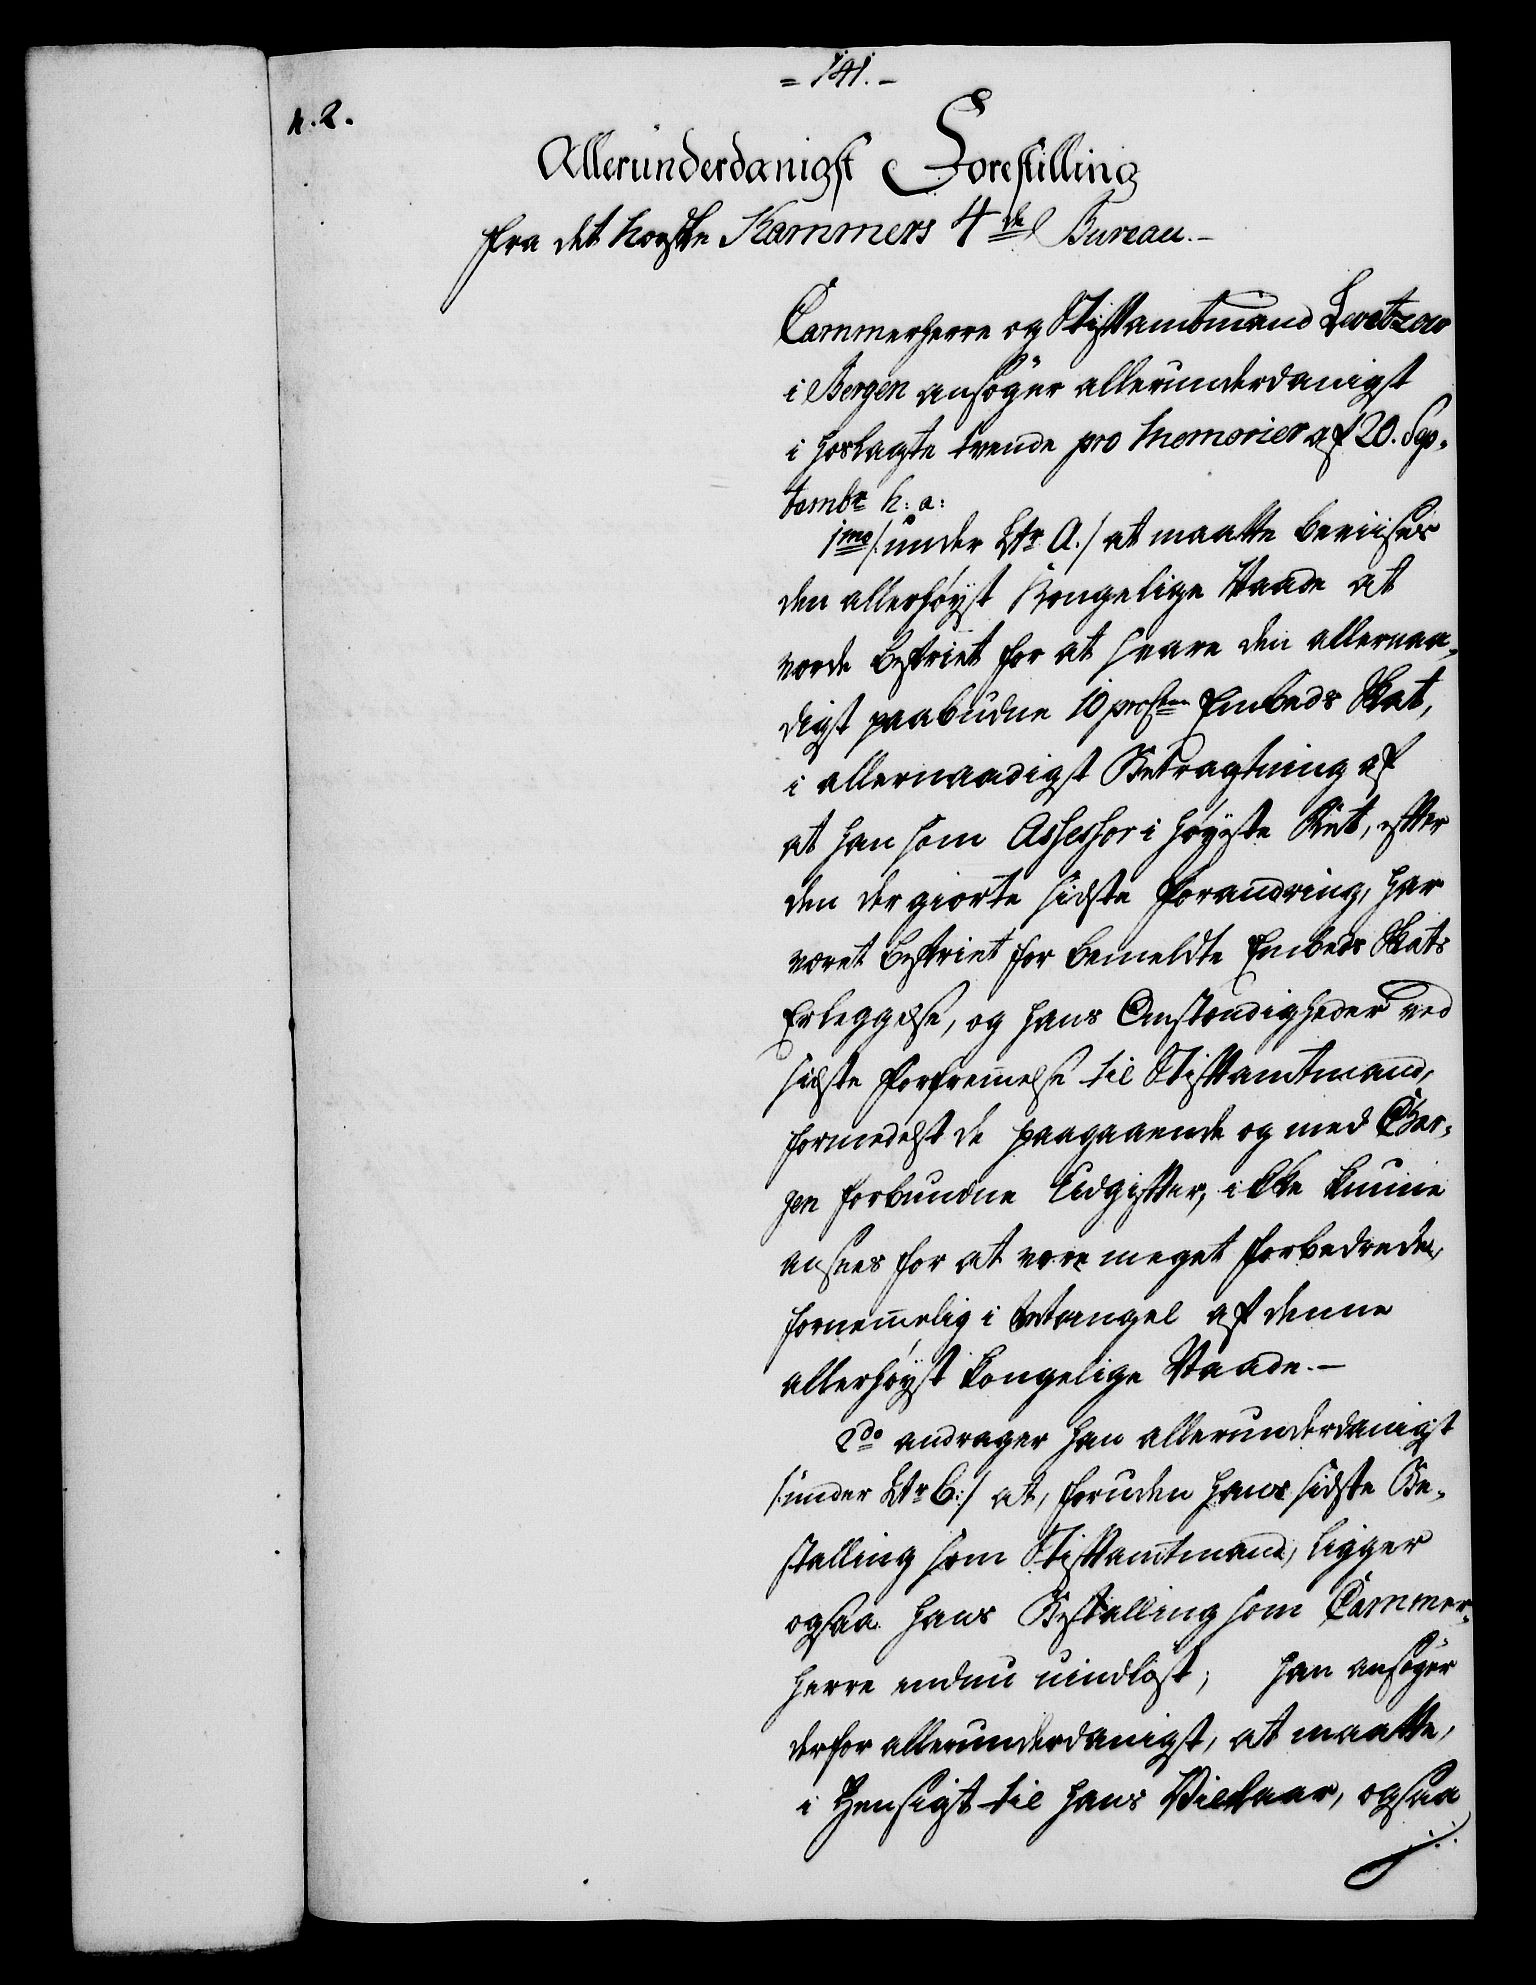 = 141. -
n. 2.
Allerunderdanigst Forestilling
fra det Norske Kammers 4de Bureau. -
Cammerherre og Stiftamtmand Levetzow
i Bergen ansøger allerunderdanigst
i hoslagte tvende pro Memorier af 20. Sep-
tembr h: a:
1mo /: under Ltr A. / at maatte beviises
den allerhøyst Kongelige Naade at
vorde befriet for at svare den allernaa-
digst paabudne 10 prosten Embeds Skat,
i allernaadigst Betragtning af
at han som Assessor i høyeste Ret, efter
den der giorte sidste Forandring, har
været befriet for bemeldte Embeds Skats
Erleggelse, og hans Omstændigheder ved
sidste Forfremelse til Stiftamtmand,
formedelst de paagaaende og med Ber-
gen forbundne Udgifter, ikke kunne
ansees for at være meget forbedrede,
fornemelig i Mangel af denne
allerhøyst kongelige Naade. -
2do andrager han allerunderdanigst
/: under Ltr B: / at, foruden hans sidste Be-
stalling som Stiftamtmand, ligger
ogsaa hans Bestalling som Cammer-
herre endnu uindløst; han ansøger
derfor allerunderdanigst, at maatte,
i Hensigt til hans Vilkaar, ogsaa